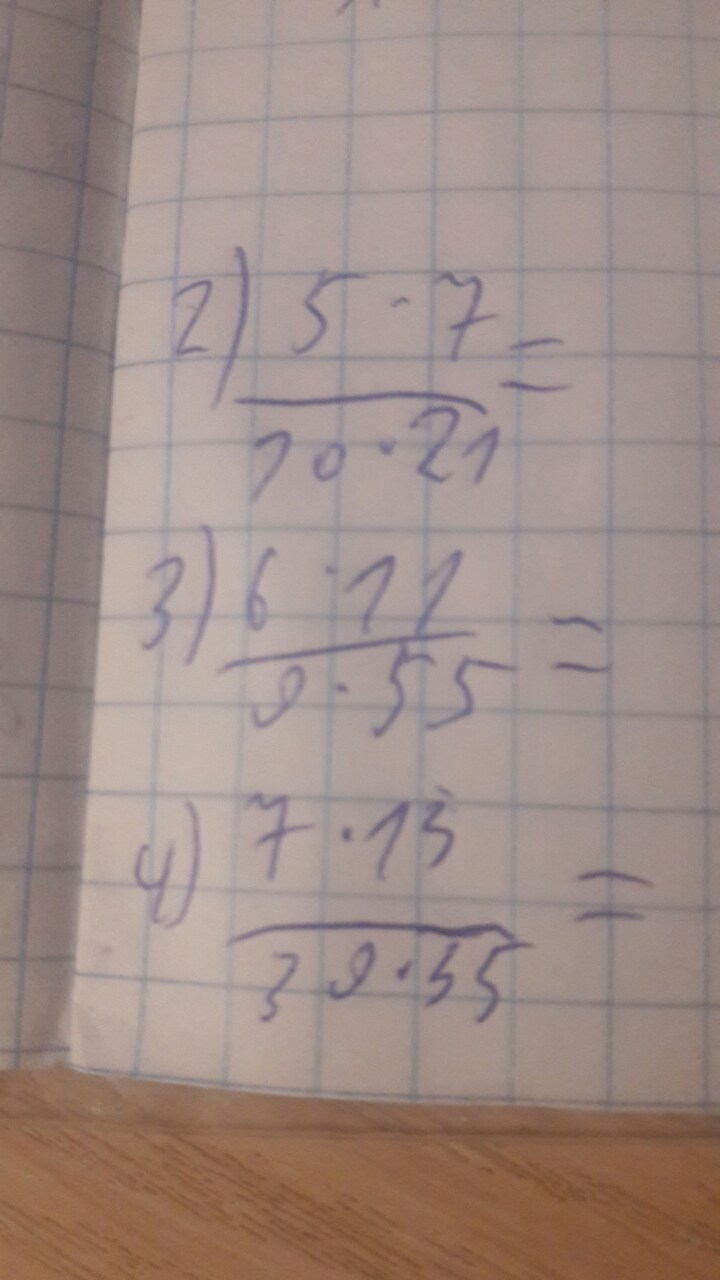 2) 5 · 7 =
10 · 21
3) 6 · 11 =
9 · 55
4) 7 · 13 =
39 · 55